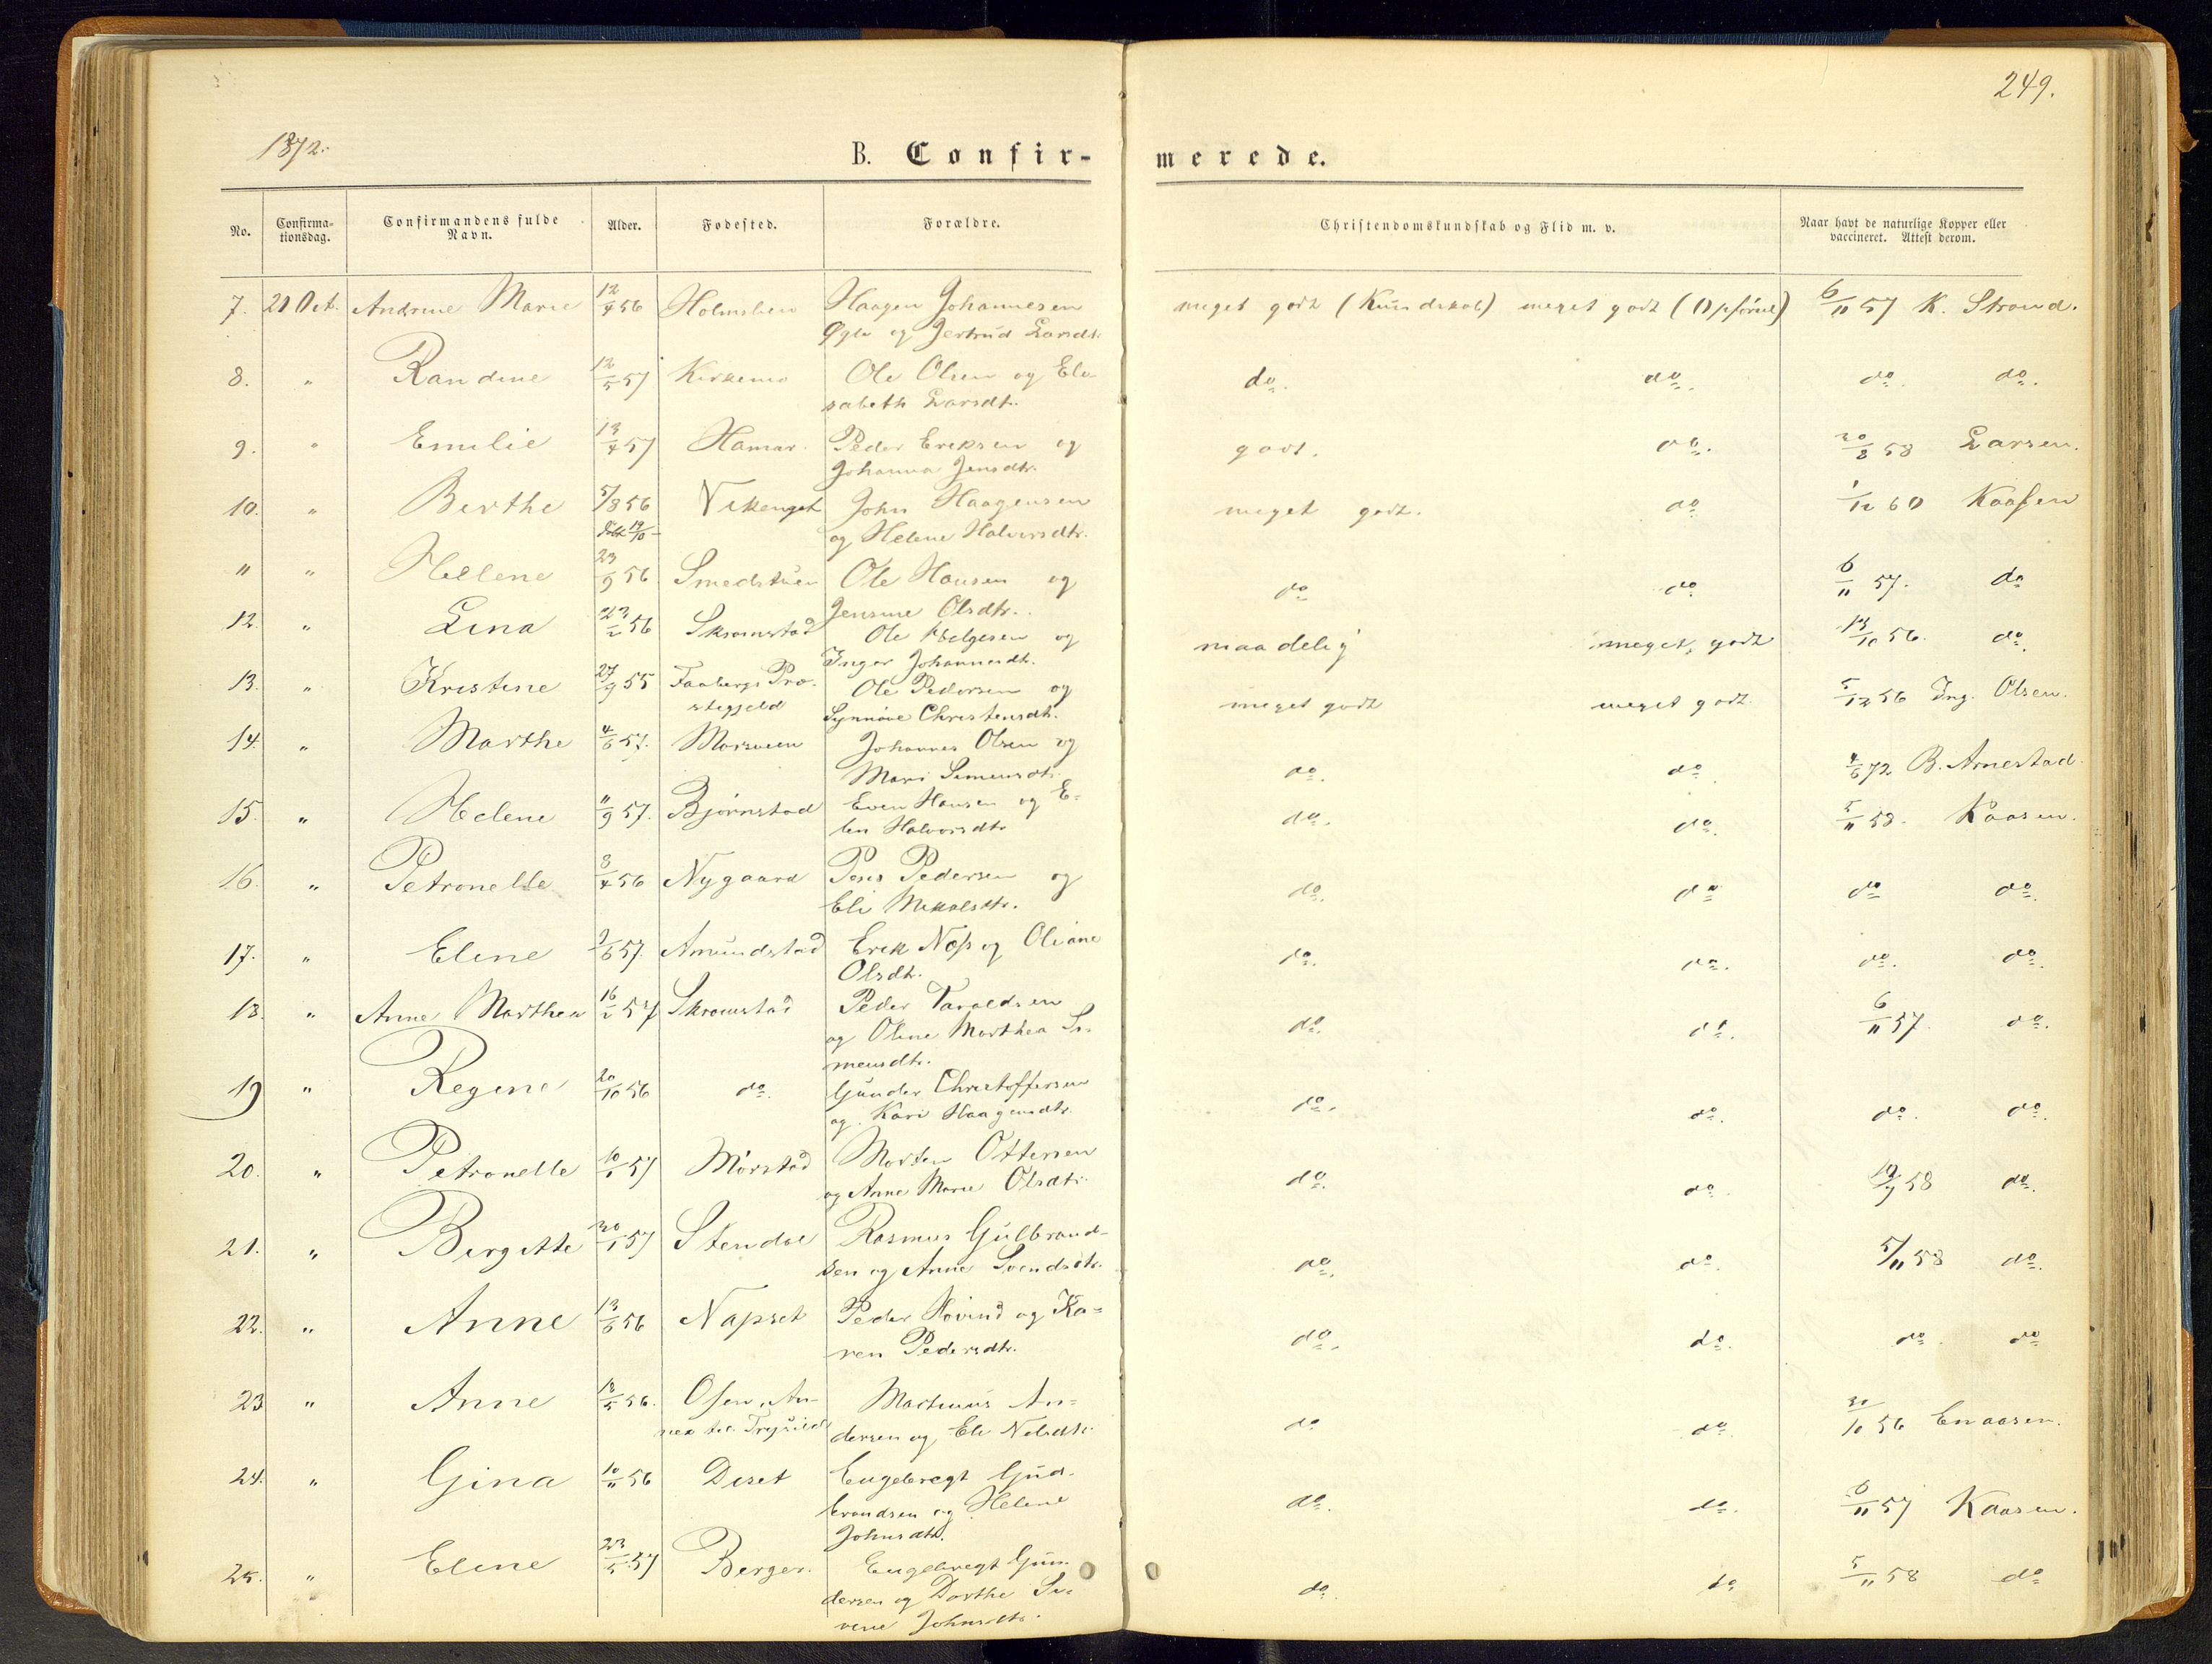 249.
1872.
B. Confir- merede.
No. Confirma- Confirmandens fulde Alder. Fødested. Forældre. Christendomskundskab og Flid m. v. Naar havt de naturlige Kopper eller
tionsdag. Navn. vaccineret. Attest derom.
7. 21 Oct. Andrine Marie 12/4 56 Holmslien Haagen Johannesen meget godt (Kundskab) meget godt (Opførsel) 6/11 57 K. Strand.
og Jertrud Larsdt.
8. " Randine 12/5 57 Kirkemo Ole Olsen og Eli- do. do. do. do.
sabeth Larsdt.
9. " Emilie 13/4 57 Hamar. Peder Eriksen og godt. do. 20/8 58 Larsen.
Johanna Jensdtr.
10. " Berthe 5/8 56 John Haagensen meget godt. do 1/12 60 Kaasen
19/10 og Helene Halvorsdtr.
11 " Hellene 23/9 56 Smedstuen Ole Hansen og do do 6/11 57. do
Jensine Olsdtr.
12. " Lina 23/2 56 Skramstad Ole Helgesen og maadelig meget godt 13/10 56. do.
Inger Johannesdt.
13. " Kristine 27/9 55 Faabergs Præ- Ole Pedersen og meget godt meget godt. 5/12 56 Ing. Olsen.
stegjeld Synnøve Christensdt.
14. " Marthe 4/6 57. Morsveen Johannes Olsen og do. do. 4/6 72 B. Arnestad.
Mari Simensdt.
15. " Helene 11/9 57. Bjørnstad Even Hansen og E- do. do. 5/11 58. Kaasen.
len Halvorsdtr
16. " Petronelle 8/4 56 Nygaard Peder Pedersen og do. do do do.
Eli Mikkelsdtr.
17. " Eline 9/6 57. Amundstad Erik Næss og Oliane do. do. do. do.
Olsdt.
18. " Anne Marthea 16/2 57 Skramstad Peder Taraldsen do. do. 6/11 57. do.
og Oline Marthea Si-
mensdt.
19 " Regine 20/10 56 do. Gunder Christoffersen do. do. do. do.
og Kari Haagensdt.
20. " Petronelle 10/1 57 Mørstad Morten Ottersen do. do. 19/7 58 do.
og Anne Marie Olsdt.
21. " Birgitte 30/1 57 Stendal Rasmus Gulbrand- do. do. 5/11 58 do.
sen og Anne Svendsdt.
22. " Anne 13/6 56 Napset Peder Hovind og Ka- do. do. do. do
ren Pedersdt.
23 " Anne 18/5 56. Osen, An- Martinus An- do do 30/10 56 Enaasen.
nex til Trysild dersen og Eli Nilsdt.
24. " Gina 10/11 56 Diset Engebregt Gud- do. do. 6/11 57 Kaasen.
brandsen og Helene
Johnsdt.
25. " Eline 23/5 57 Berger. Engebregt Gun- do. do 5/11 58 do
dersen og Dorthe Se-
verine Johnsdt.